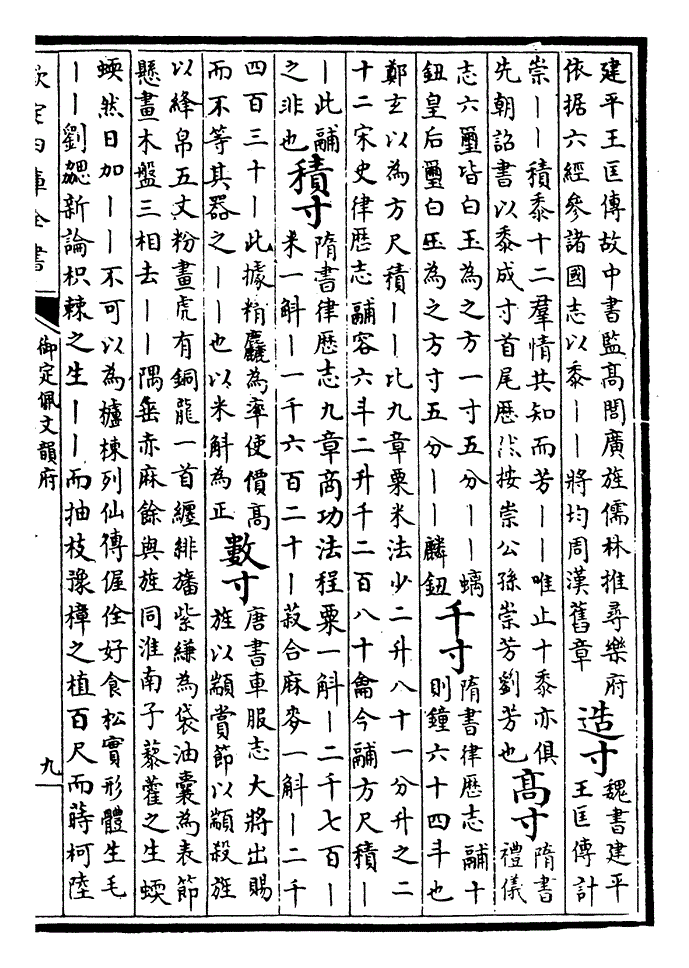 建平王匡傳故中書監高閭廣旌儒林推尋樂府
依据六經參諸國志以黍——將均周漢舊章
造寸
魏書建平
王匡傳計
崇——積黍十二羣情共知而芳——唯止十黍亦俱
先朝詔書以黍成寸首尾歷然按崇公孫崇芳劉芳也
高寸
隋書
禮儀
志六璽皆白玉為之方一寸五分——螭
鈕皇后璽白玉為之方寸五分——麟鈕
千寸
隋書律歷志鬴十
則鐘六十四斗也
鄭玄以為方尺積——比九章粟米法少二升八十一分升之二
十二宋史律歷志鬴容六斗二升千二百八十龠今鬴方尺積—
—此鬴
之非也
積寸
隋書律歷志九章商功法程粟一斛—二千七百—
米一斛—一千六百二十—菽合麻麥一斛—二千
四百三十—此據精麤為率使價高
而不等其器之——也以米斛為正
數寸
唐書車服志大將出賜
旌以顓賞節以顓殺旌
以絳帛五丈粉畫虎有銅龍一首纏緋旛紫縑為袋油囊為表節
懸畫木盤三相去——隅垂赤麻餘與旌同淮南子藜藿之生蝡
蝡然日加——不可以為櫨棟列仙傳偓佺好食松實形體生毛
——劉勰新論枳棘之生——而抽枝豫樟之植百尺而蒔柯陸
欽定四庫全書
御定佩文韻府
九